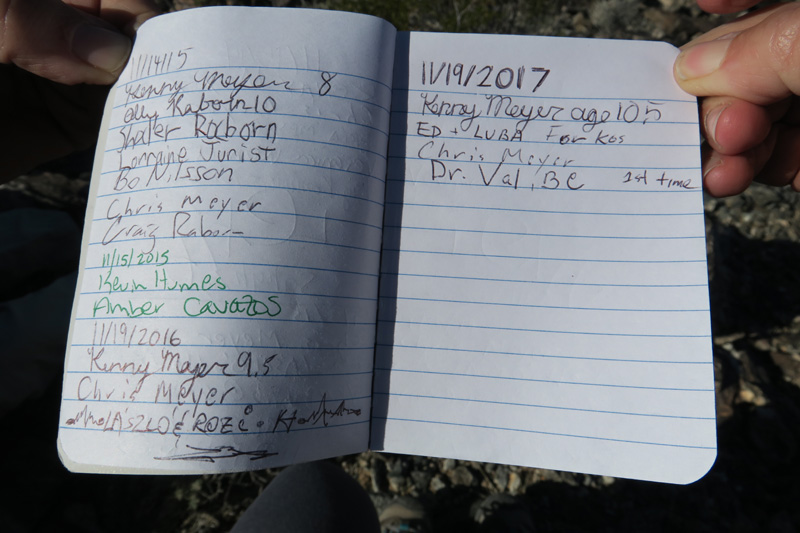 11/14/15
Kenny Meyer 8
Olly Raborn 10
Shaler Raborn
Lorraine Jurist
Bo Nilsson
Chris Meyer
Craig Raborn
11/15/2015
Kevin Humes
Amber Cavazos
11/19/2016
Kenny Mayer 9.5
Chris Meyer
LÁSZLÓ & ROZÉ
11/19/2017
Kenny Meyer age 10.5
ED + LUBA FOR KOS
Chris Meyer
Dr. Val, BC 1st time